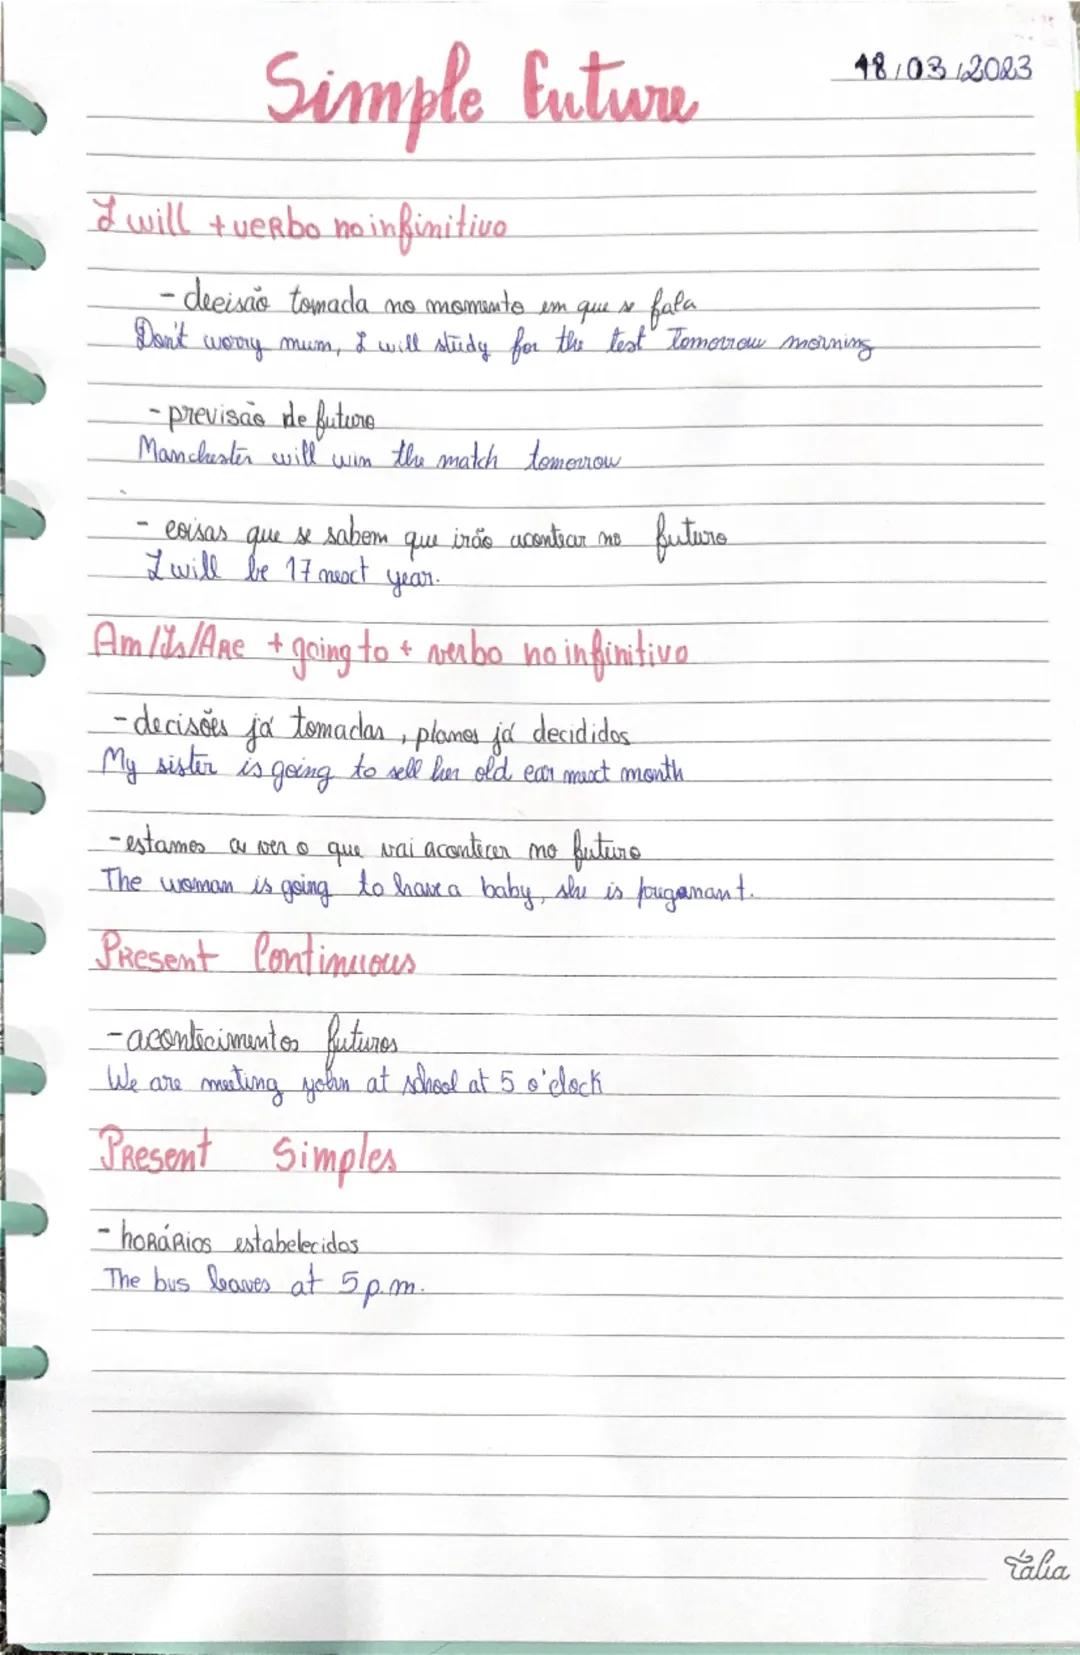 Simple Future
18/03/2023
I will + verbo no infinitivo
- decisão tomada no momento em que se fala
Don't worry mum, I will study for the test tomorrow morning
- previsão de futuro
Manchester will win the match tomorrow
- coisas que se sabem que irão acontecar no futuro
I will be 17 next year.
Am/Is/Are + going to + verbo no infinitivo
- decisões já tomadas, planos já decididos
My sister is going to sell her old car next month
- estamos a ver o que vai acontecer no futuro
The woman is going to have a baby, she is preganant.
Present Continuous
- acontecimentos futuros
We are meeting john at school at 5 o'clock
Present Simples
- horários estabelecidos
The bus leaves at 5 p.m.
Tália